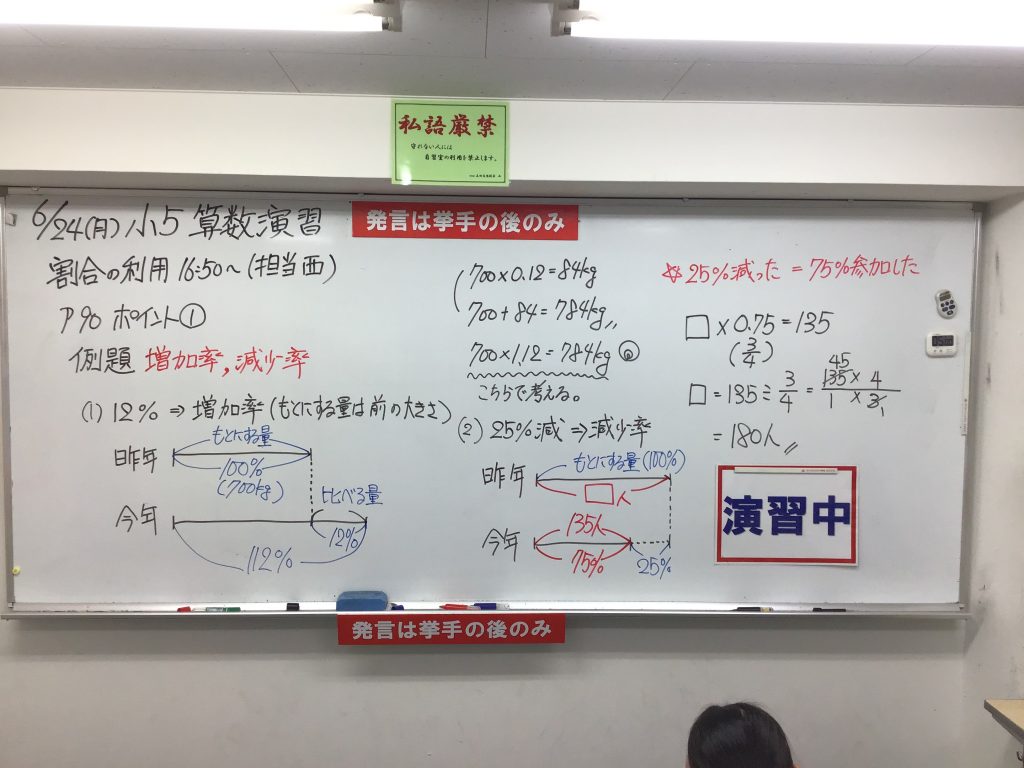 私語厳禁
守れない人には
自習室の利用を禁止します。
発言は挙手の後のみ
6/24(月) 小5 算数演習
割合の利用 16:50〜(担当西)
P90 ポイント①
例題 増加率,減少率
(1) 12% ⇒ 増加率(もとにする量は前の大きさ)
もとにする量
昨年
100%
(700kg)
比べる量
今年
12%
112%
700×0.12=84kg
700+84=784kg
700×1.12=784kg
こちらで考える。
(2) 25%減⇒減少率
もとにする量(100%)
昨年
□人
135人
今年
75%
25%
☆25%減った=75%参加した
□×0.75=135
(3/4)
□=135÷3/4=135×4/1×3
45
1
=180人
演習中
発言は挙手の後のみ